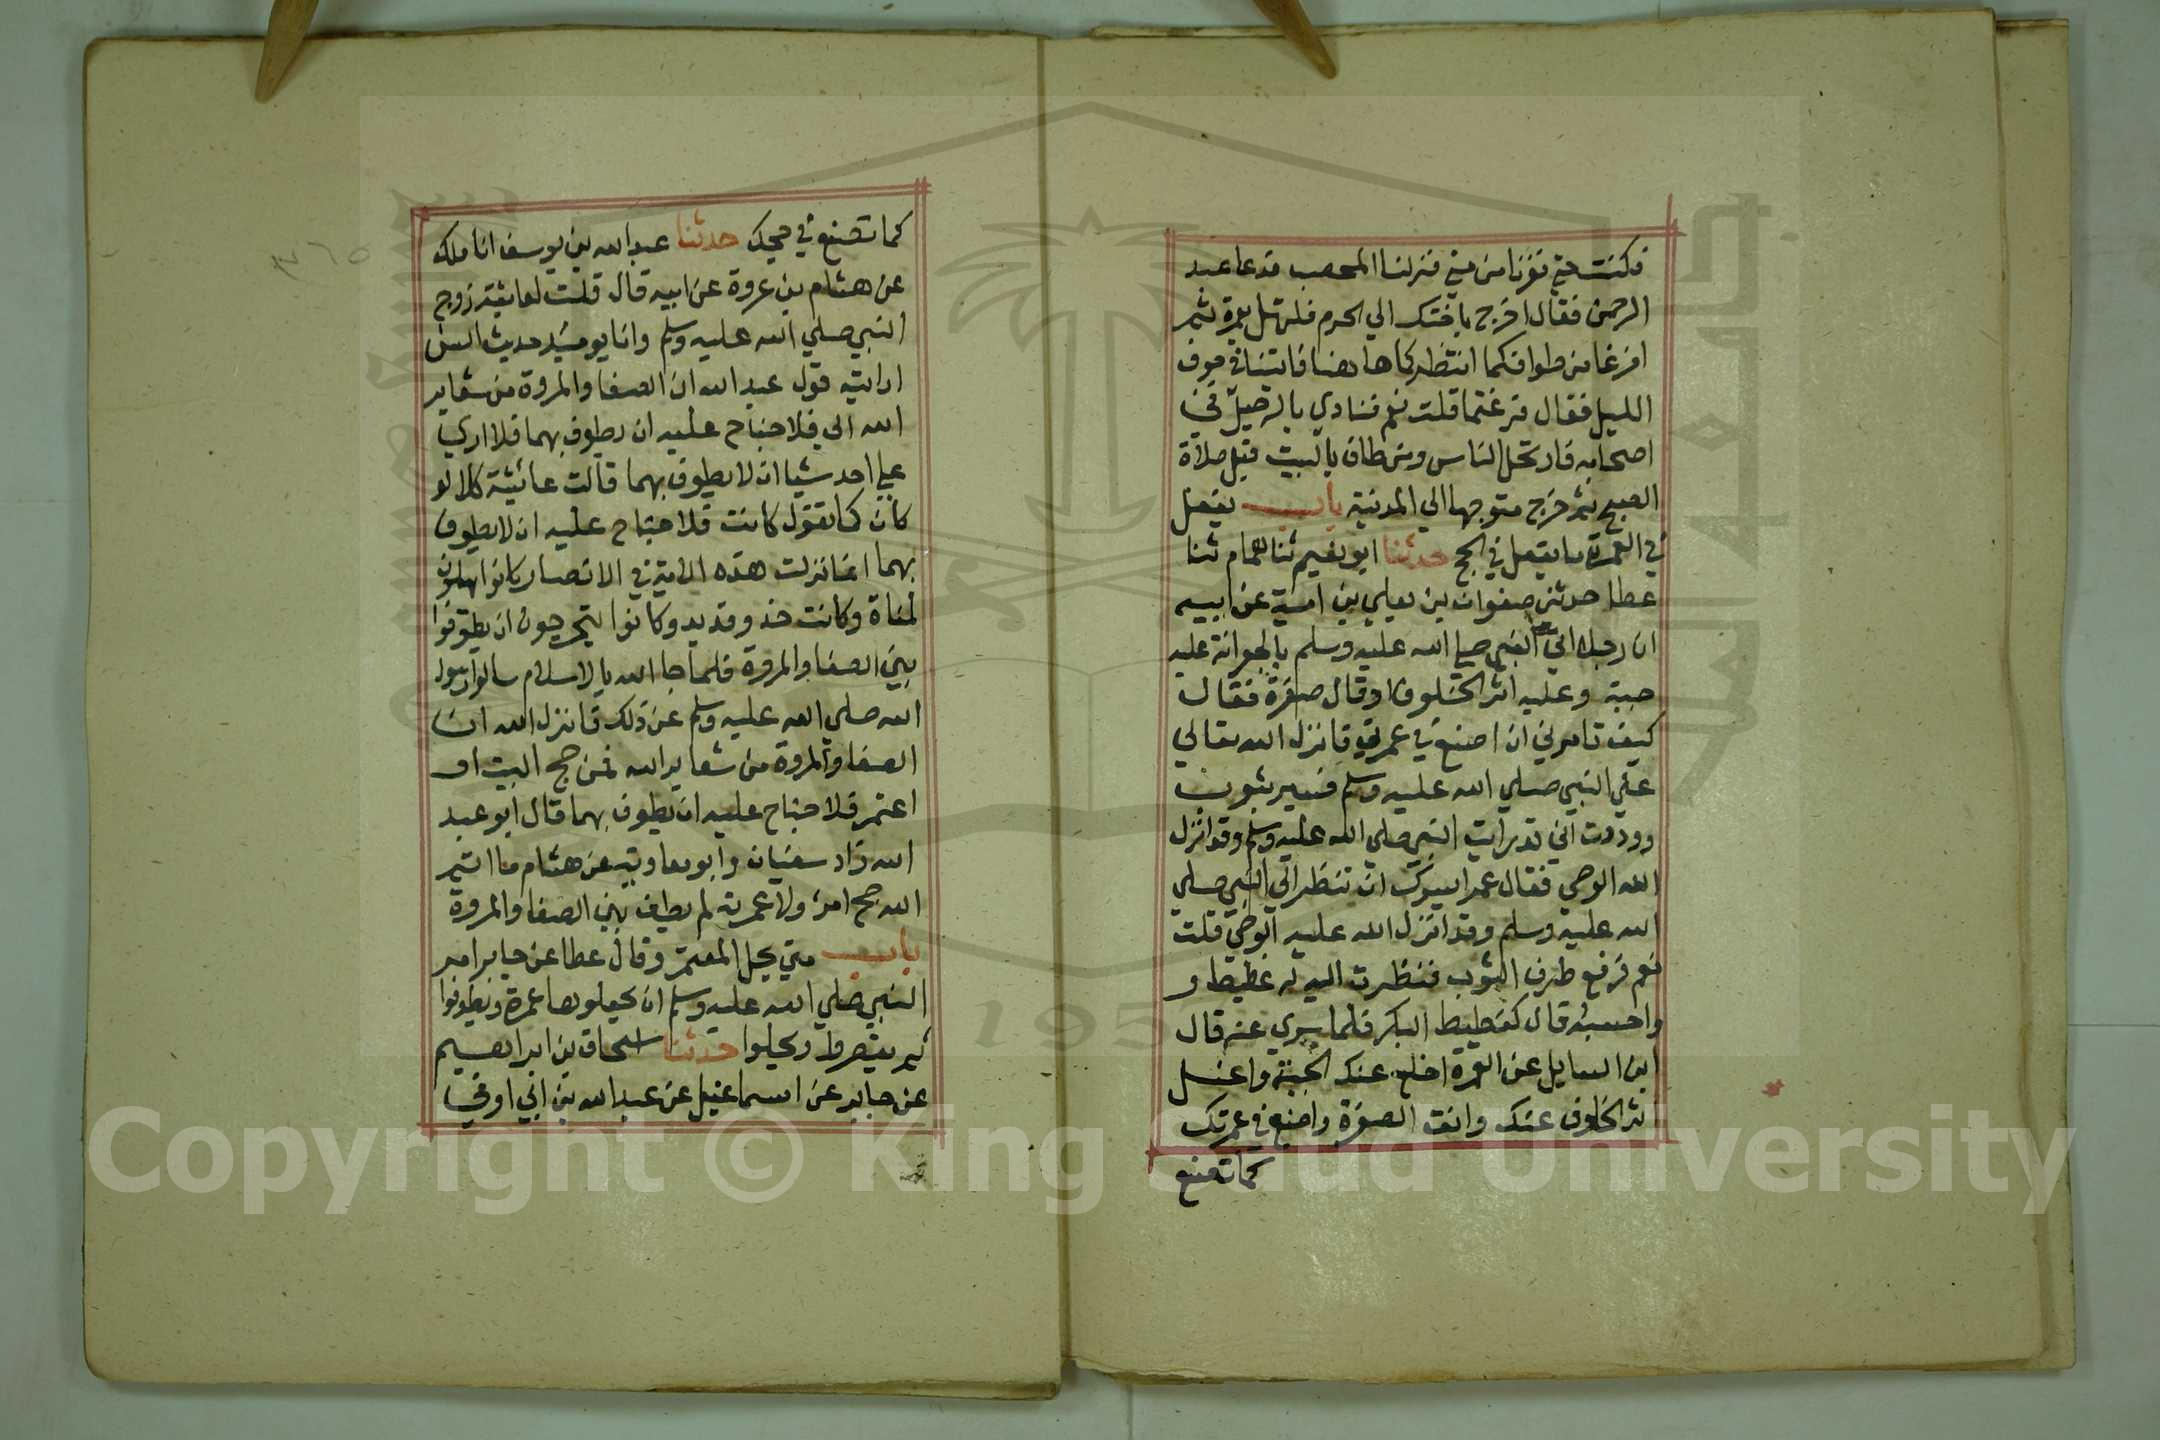 فكنت حتي نفرنا من مني فنزلنا المحصب فدعا عبد
الرحمن فقال اخرج باختك الي الحرم فلتهل بعمرة ثم
افرغا من طوافكما انتظركما هاهنا فاتينا في جوف
الليل فقال فرغتما قلت نعم فنادي بالرحيل في
اصحابه فارتحل الناس ومن طاف بالبيت قبل صلاة
الصبح ثم خرج متوجها الي المدينة باب يفعل
في العمرة ما يفعل في الحج حدثنا ابو نعيم ثنا همام ثنا
عطا حدثني صفوان بن يعلي بن امية عن ابيه
ان رجلا اتي النبي صلي الله عليه وسلم بالجعرانة عليه
جبة وعليه اثر الخلوق او قال صفرة فقال
كيف تامرني ان اصنع في عمرتي فانزل الله تعالي
علي النبي صلي الله عليه وسلم فستر بثوب
ووددت اني قد رايت النبي صلي الله عليه وسلم وقد انزل
الله الوحي فقال عمر ايسرك ان تنظر الي النبي صلي
الله عليه وسلم وقد انزل الله عليه الوحي قلت
نعم فرفع طرف الثوب فنظرت اليه له غطيط و
واحسبه قال كغطيط البكر فلما سري عنه قال
اين السايل عن العمرة اخلع عنك الجبة واغسل
اثر الخلوق عنك وانق الصفرة واصنع في عمرتك
كما تصنع
كما تصنع في حجك حدثنا عبد الله بن يوسف انا ملك
عن هشام بن عروة عن ابيه قال قلت لعايشة زوج
النبي صلي الله عليه وسلم وانا يوميذ حديث السن
ارايت قول عبد الله ان الصفا والمروة من شعاير
الله الي فلا جناح عليه ان يطوف بهما فلا اري
علي احد شيا ان لا يطوف بهما قالت عائشة كلا لو
كان كما تقول كانت فلا جناح عليه ان لا يطوف
بهما انما نزلت هذه الاية في الانصار كانوا يهلون
لمناة وكانت حذو قديد وكانوا يتحرجون ان يطوفوا
بين الصفا والمروة فلما جا الله بالاسلام سالوا رسول
الله صلي الله عليه وسلم عن ذلك فانزل الله ان
الصفا والمروة من شعاير الله فمن حج البيت او
اعتمر فلا جناح عليه ان يطوف بهما قال ابو عبد
الله زاد سفيان وابو معاوية عن هشام ما اتم
الله حج امرئ ولا عمرته لم يطف بين الصفا والمروة
باب متي يحل المعتمر وقال عطا عن جابر امر
النبي صلي الله عليه وسلم ان يجعلوها عمرة ويطوفوا
ثم يقصروا ويحلوا حدثنا اسحاق بن ابراهيم
عن جابر عن اسماعيل عن عبد الله بن ابي اوفي
٣٦٥
Copyright © King Saud University